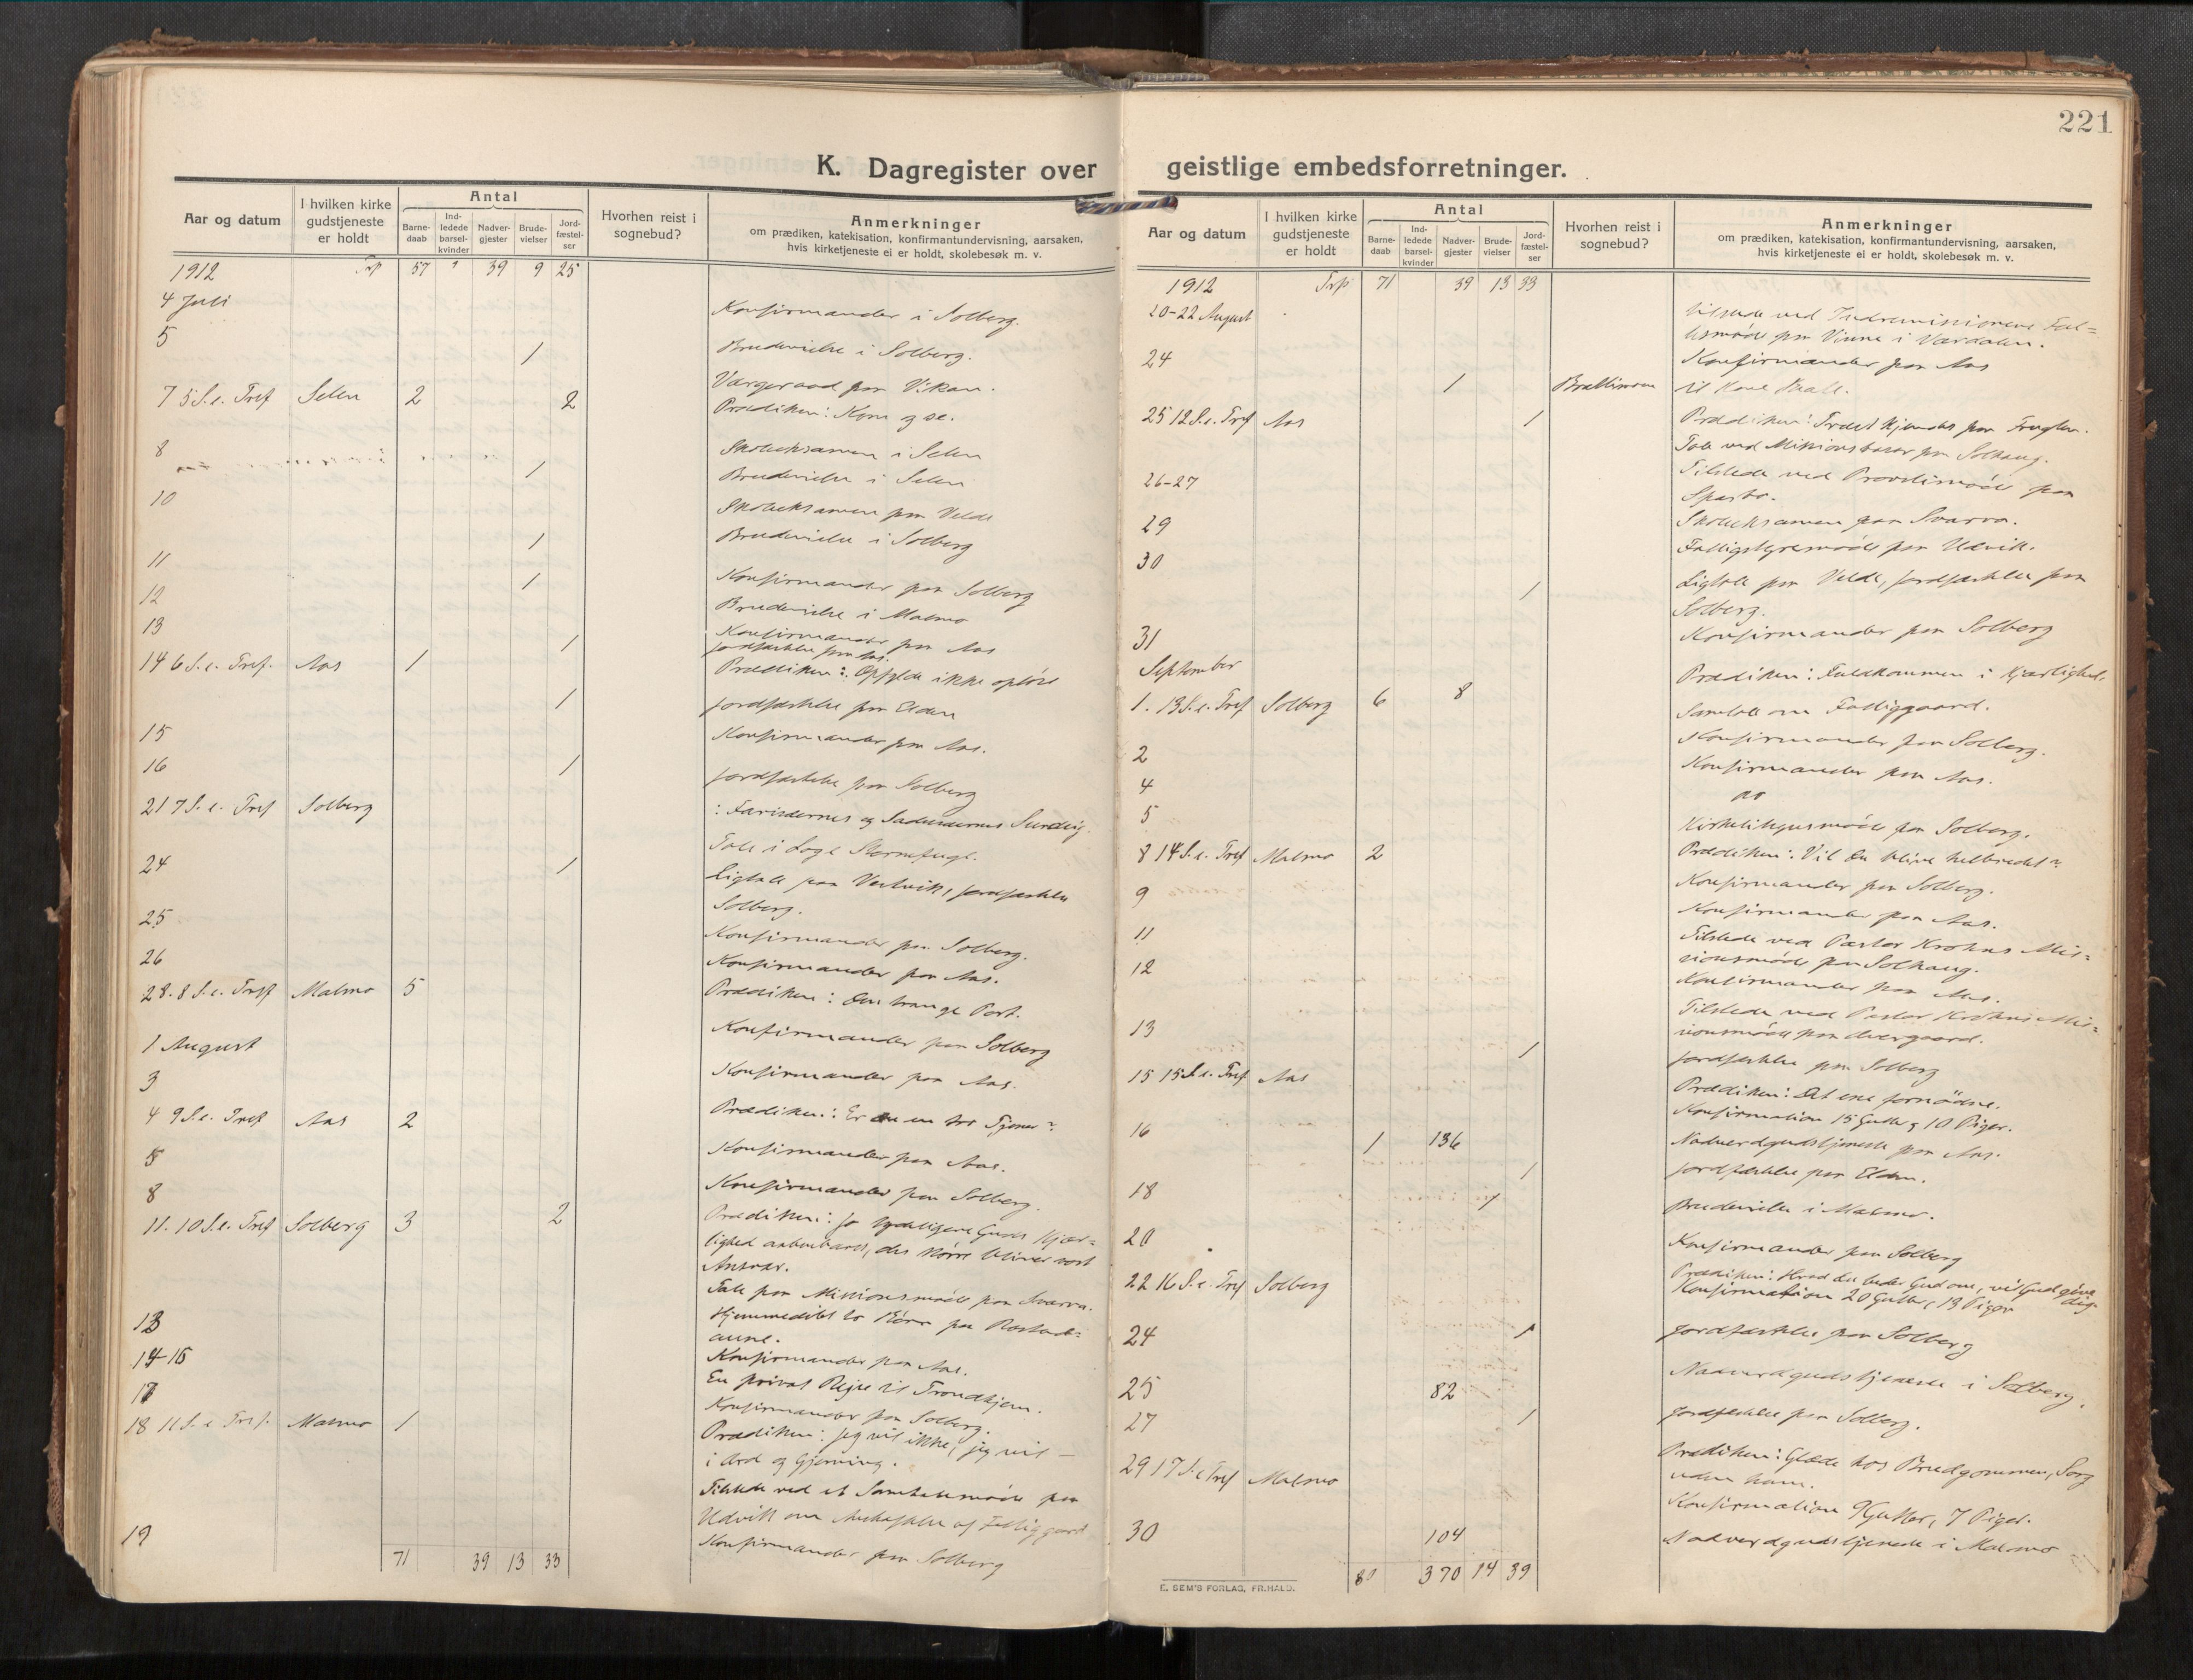 221
K. Dagregister over geistlige embedsforretninger.
Aar og datum
I hvilken kirke gudstjeneste er holdt
Antal
Barne-daab
Ind-ledede barsel-kvinder
Nadver-gjester
Brude-vielser
Jord-fæstel-ser
Hvorhen reist i sognebud?
Anmerkninger
om prædiken, katekisation, konfirmantundervisning, aarsaken,
hvis kirketjeneste ei er holdt, skolebesøk m. v.
1912 Trp 57 39 9 25
4 Juli Konfirmander i Solberg.
5 1 Brudevielse i Solberg.
Værgeraad paa Vikan.
7 5 S. e. Tref Selen 2 2 Prædiken: Kom og se.
8 Skoleeksamen i Selen
1 Brudevielse i Selen
10 Skoleeksamen paa Velde
1 Brudevielse i Solberg
11 Konfirmander paa Solberg
12 1 Brudevielse i Malmo
13 Konfirmander paa Aas
1 Jordfæstelse paa Aas.
14 6 S. e. Tref. Aas 1 Prædiken: Opfylde ikke opløse
1 Jordfæstelse paa Elden
15 Konfirmander paa Aas.
16 1 Jordfæstelse paa Solberg
21 7 S. e. Tref Solberg : Farisæernes og Sadducæernes Surdeig.
Tale i Loge Stormfugl.
24 1 Ligtale paa Vestvik, Jordfæstelse
Solberg.
25 Konfirmander paa Solberg.
26 Konfirmander paa Aas.
28. 8 S. e. Tref Malmo 5 Prædiken: Den trange Port.
1 August Konfirmander paa Solberg
3 Konfirmander paa Aas.
4 9 S. e. Tref Aas 2 Prædiken: Er du en tro Tjener?
5 Konfirmander paa Aas.
8 Konfirmander paa Solberg.
11. 10 S. e. Tref Solberg 3 2 Prædiken: Jo tydeligere Guds Kjær=
lighed aabenbares, des større bliver vort
Ansvar.
Tale paa Missionsmøde paa Svarva.
13 Hjemmedøbt to Børn paa
Konfirmander paa Aas.
14-16 En privat Rejse til Trondhjem.
17 Konfirmander paa Solberg.
18 11 S. e. Tref. Malmo 1 Prædiken: Jeg vil ikke, jeg vil —
i Ord og Gjerning.
Tilstede ved et Samtalemøde paa
Utvik om Anskaffelse af Fattiggaard
19 Konfirmander paa Solberg
71 39 13 33
Aar og datum
I hvilken kirke gudstjeneste er holdt
Antal
Barne-daab
Ind-ledede barsel-kvinder
Nadver-gjester
Brude-vielser
Jord-fæstel-ser
Hvorhen reist i sognebud?
Anmerkninger
om prædiken, katekisation, konfirmantundervisning, aarsaken,
hvis kirketjeneste ei er holdt, skolebesøk m. v.
1912 Trp 71 39 13 33
20-22 August Tilstede ved Indremissionens Fæl=
lesmøde paa Vinne i Værdalen.
24 Konfirmander paa Aas
1
25 12 S. e. Tref Aas 1 Prædiken: Træet kjendes paa Frugten.
Tale ved Missionsbasar paa Solhaug.
26-27 Tilstede ved Provstimøde paa
Sparbo.
29 Skoleeksamen paa Svarva.
30 Fattigstyremøde paa Utvik.
1 Ligtale paa Velde, Jordfæstelse paa
Solberg.
31 Konfirmander paa Solberg
September
1. 13 S. e. Tref Solberg 6 8 Prædiken: Fuldkommen i Kjærlighed.
Samtale om Fattiggaard.
2 Konfirmander paa Solberg.
4 Konfirmander paa Aas.
5 Kirketilsynsmøde paa Solberg.
8 14 S. e. Tref Malmo 2 Prædiken: Vil Du blive helbredet?
9 Konfirmander paa Solberg.
11 Konfirmander paa Aas.
12 Tilstede ved Pastor Krohns Mis=
sionsmøde paa Solhaug.
Konfirmander paa Aas.
13 Tilstede ved Pastor Krohns Mis=
sionsmøde paa
1 Jordfæstelse paa Solberg
15 15 S. e. Tref Aas Prædiken: Det ene fornødne.
Konfirmation 15 Gutter, 10 Piger.
16 1 136 Nadverdgudstjeneste paa Aas.
1 Jordfæstelse paa Elden.
18 1 Brudevielse i Malmo.
20 Konfirmander paa Solberg
22 16 S. e. Tref Solberg Prædiken: Hvad du beder Gud om, vil Gud give
dig.
Konfirmation 20 Gutter, 13 Piger
24 1 Jordfæstelse paa Solberg
25 82 Nadverdgudstjeneste i Solberg.
27 1 Jordfæstelse paa Solberg.
29 17 S. e. Tref Malmo Prædiken: Glæde hos Brudgommen, Sorg
uden ham.
Konfirmation 9 Gutter, 7 Piger.
30 104 Nadverdgudstjeneste i Malmo
80 370 14 39
E. SEM'S FORLAG, FR.HALD.